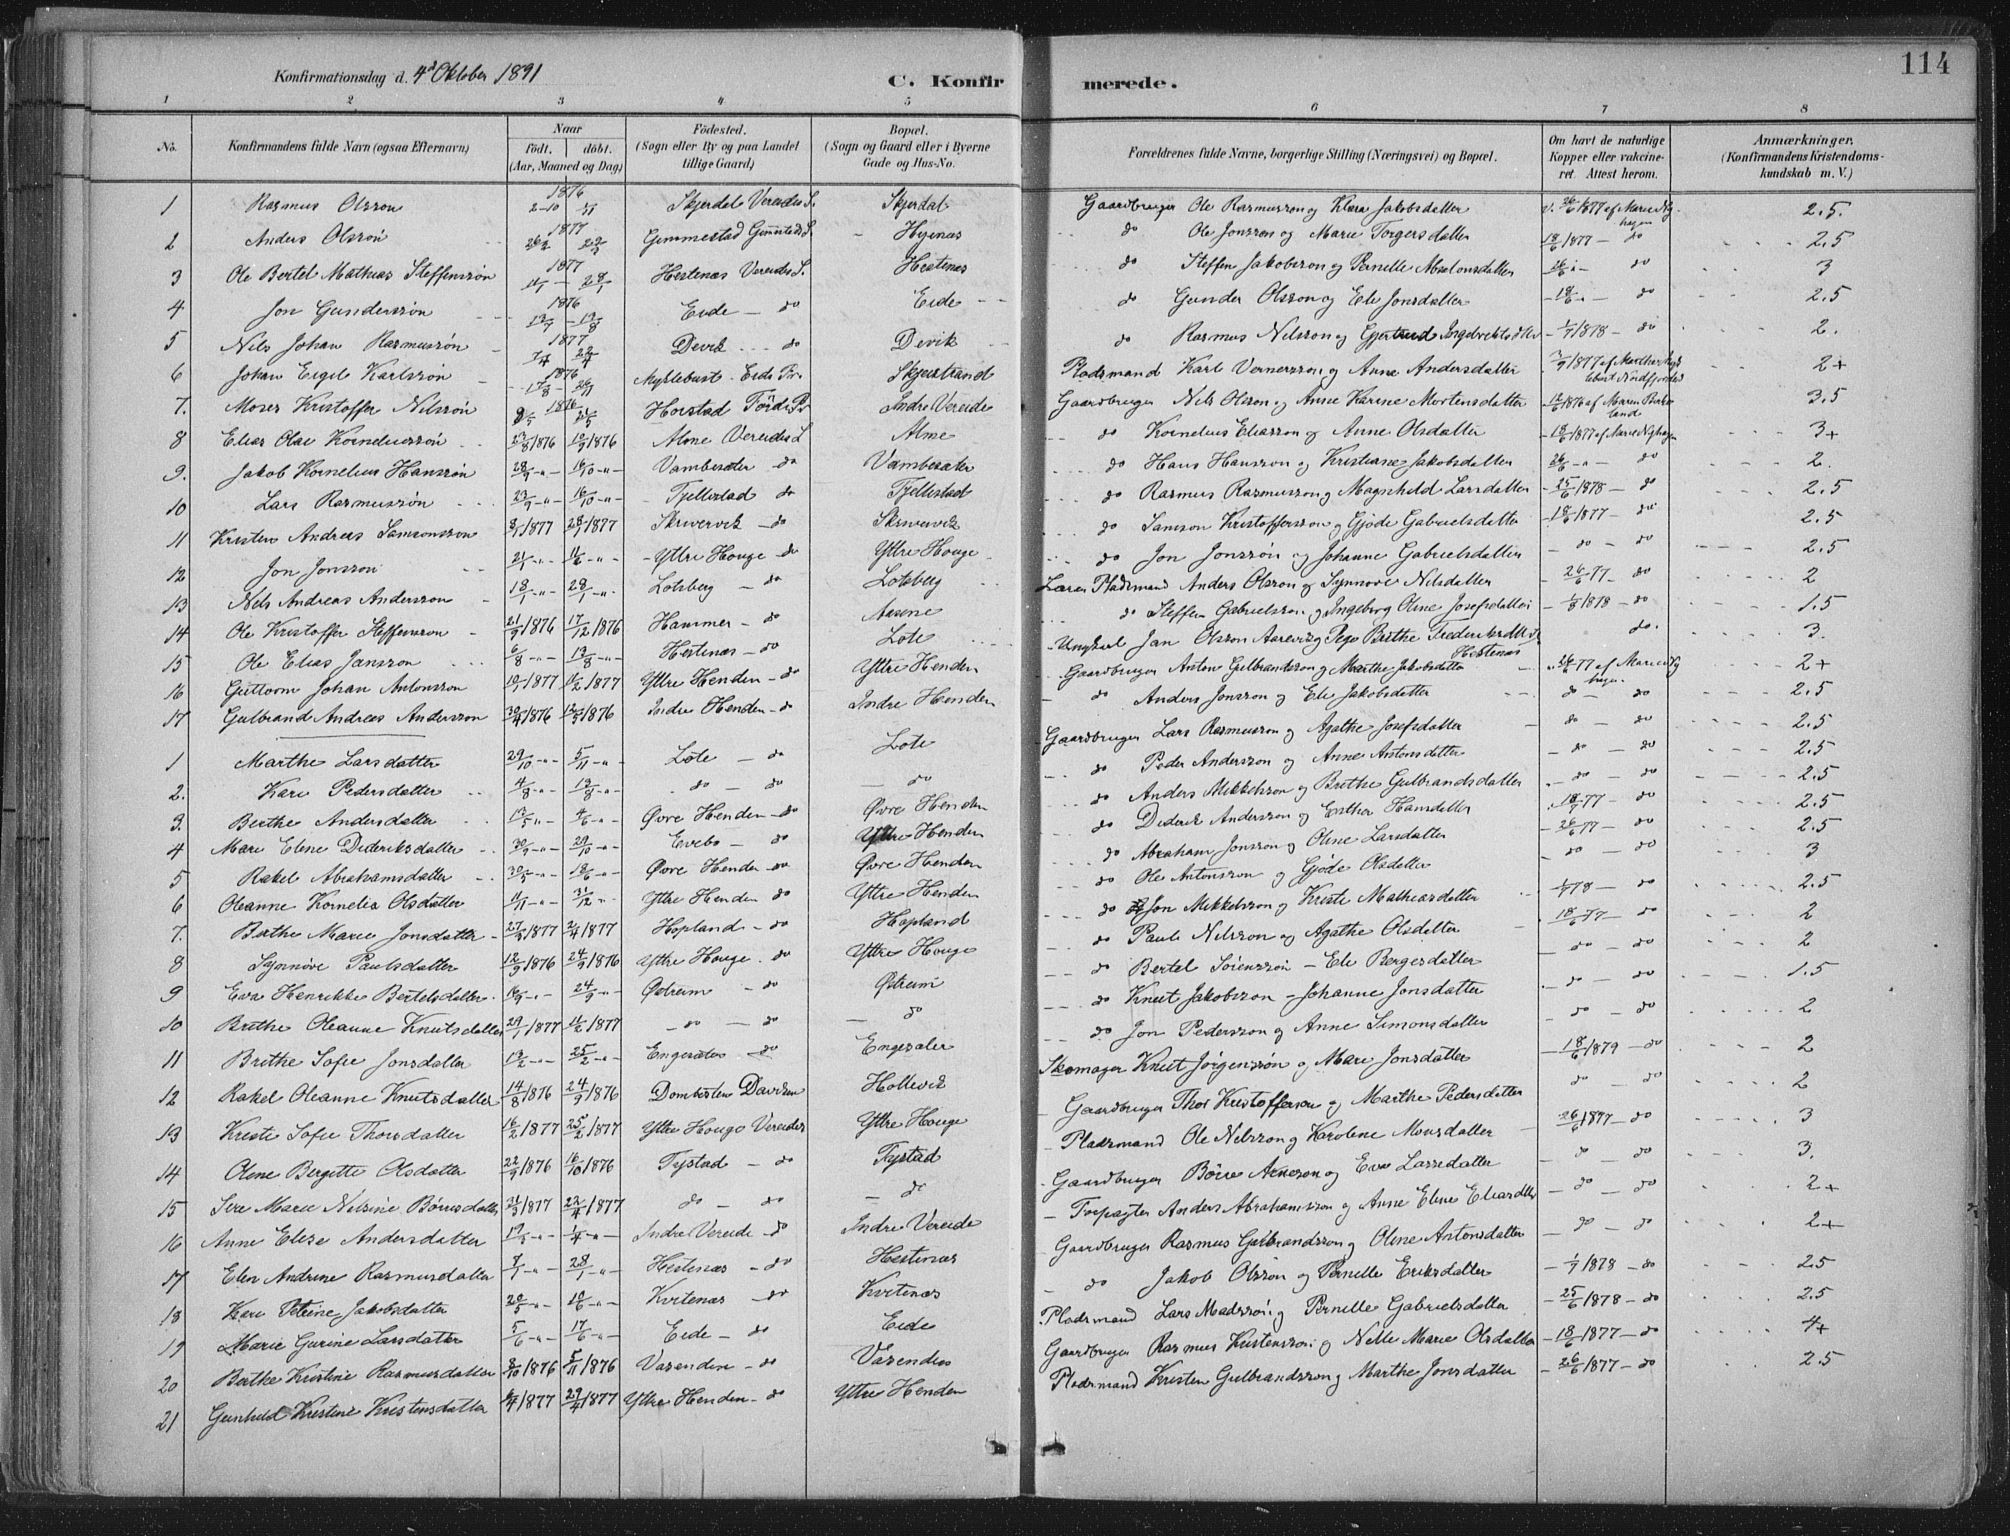 114
Konfirmationsdag d. 4d Oktober 1891
C. Konfirmerede.
1 2 3 4 5 6 7 8
No. Konfirmandens fulde Navn (ogsaa Efternavn) Naar födt. döbt. (Aar, Maaned og Dag) Födested. (Sogn eller By og paa Landet tillige Gaard) Bopæl. (Sogn og Gaard eller i Byerne Gade og Hus-No. Forældrenes fulde Navne, borgerlige Stilling (Næringsvei) og Bopæl. Om havt de naturlige Kopper eller vakcineret. Attest herom. Anmærkninger. (Konfirmandens Kristendomskundskab m. V.)
1 Rasmus Olsson 1876 Skjerdal Vereides S. Skjerdal Gaardbruger Ole Rasmusson og Klara Jakobsdatter 2.5.
2 Anders Olsson 1877 Gimmestad Hyenæs do Ole Jonsson og Marie Torgersdatter 18/6 1877 — do 2.5
3 Ole Bertel Mathias Steffensson 1877 Hestenæs Vereides S. Hestenæs do Steffen Jakobsson og Pernelle Absalonsdatter do 3
4 Jon Gundersson 1876 Eide — do Eide do Gunder Olsson og Eli Jonsdatter do 2.5
5 Nils Johan Rasmussøn 1877 Devik do Devik do Rasmus Nilsson og Gjertrud 1/7 1878 — do 2.
6 Johan Eigil Karlssøn 1876 Myklebust Eids Pr. Skjestrand Pladsmand Karl Vernersson og Anne Andersdatter 2+
7. Moses Kristoffer Nilssøn 1876 Horstad Förde Pr Indre Vereide Gaardbruger Nils Olsson og Anne Karine Mortensdatter 3.5
8 Elias Olai Korneliussøn 1876 1876 Alme Vereides S Alme do Kornelius Eliasson og Anne Olsdatter 18/6 1877 af Marie Nyhagen 3+
9. Jakob Kornelius Hanssøn Vambesæter do Vambesæter do Hans Hansson og Kristiane Jakobsdatter do 2.
10 Lars Rasmussøn Fjellestad do Fjellestad do Rasmus Rasmusson og Magnhild Larsdatter 25/6 1878 — do 2.5
11 Kristen Andreas Samsonsson 1877 1877 Skrivervik — do Skrivervik do Samson Kristoffersson og Gjöde Gabrielsdatter 18/6 1877 — do 2.5
12 Jon Jonsson Yttre Houge do Yttre Houge do Jon Jonssøn og Johanne Gabrielsdatter do — do 2.5
13 Nils Andreas Andersson Lotsberg — do Lotsberg Pladsmand Anders Olsson og Synnøve Nilsdatter 26/6 77 — do 2
14 Ole Kristoffer Steffensson 21/9 1876 17/12 1876 Hammer — do Aasene do Steffen Gabrielsson og Ingeborg Oline Josefsdatter 1/8 1878 — do 1.5
15 Ole Elias Jansson Hestenæs — do Lote Ungkarl Jan Olsson Aarevig og Pige Brithe Frederiksdatter Hestenæs do. 3.
16 Guttorm Johan Antonsson 1877 1877 Yttre Henden — do Yttre Henden Gaardbruger Anton Gulbrandsson og Marthe Jakobsdatter 2+
17 Gulbrand Andreas Andersson 1876 1876 Indre Henden — do Indre Henden do Anders Jonsson og Eli Jakobsdatter do — do 2.5
1 Marthe Larsdatter 29/10 5/11 Lote — do Lote Gaardbruger Lars Rasmusson og Agathe Josefsdatter do — do 2.5
2. Kari Pedersdatter do — do do do Peder Andersson og Anne Antonsdatter do — do 2.5
3. Berthe Andersdatter Øvre Henden — do Øvre Henden do Anders Mikkelsson og Brithe Gulbrandsdatter do — do 2.5
4 Mari Eline Dideriksdatter Evebø — do Yttre Henden do Diderik Andersson og Esther Hansdatter do 2.5
5 Rakel Abrahamsdatter Øvre Henden — do Øvre Henden do Abraham Jonsson og Oline Larsdatter 26/6 77 — do 2.5
6 Oleanne Kornelia Olsdatter Yttre Henden do Yttre Henden do Ole Antonsson og Gjöde Olsdatter do — do 3
7. Brithe Marie Jonsdatter 1877 1877 Hopland — do Hopland do Jon Mikkelsson og Kristi Mathiasdatter do 2.5
8 Synnøve Paulsdatter 12/9 1876 24/9 1876 Yttre Houge do Yttre Houge do Paul Nilsson og Agathe Olsdatter 18/6 77 — do 2
9 Eva Henrikke Bertelsdatter 24/9 Østrum — do Østrum do Bertel Sørenssøn — Eli Bergesdatter do — do 2
10 Brithe Oleanne Knutsdatter 29/1 1877 1877 do — do do do Knut Jakobsson — Johanne Jonsdatter do — do 1.5
11 Brithe Sofie Jonsdatter 25/2 Engesæter do Engesæter do Jon Pedersson og Anne Simonsdatter do — do 2
12 Rakel Oleanne Knutsdatter 14/8 1876 24/9 1876 Dombesten Daviken Hollevik Skomager Knut Jørgenssøn og Mari Jonsdatter 18/6 1879 — do 2
13 Kristi Sofie Thorsdatter 16/2 1877 25/2 1877 Yttre Houge Vereides Yttre Houge Gaardbruger Thor Kristofferson og Marthe Pedersdatter do — do 2
14 Oline Bergitte Olsdatter 22/9 1876 16/10 1876 Tystad — do Tystad Pladsmand Ole Nilsson og Karoline Monsdatter do 3
15 Sire Marie Nilsine Børresdatter 1877 22/4 1877 do — do do Gaardbruger Børre Arneson og Eva Larsdatter do — do 3.
16 Anne Elise Andersdatter Indre Vereide — do Indre Vereide Forpagter Anders Abrahamsson og Anne Eline Eliasdtr do — do 2+
17 Elen Andrine Rasmusdatter 28/1 Hestenæs — do Hestenæs Gaardbruger Rasmus Gulbrandsson og Oline Antonsdatter do — do 2+
18 Kari Jakobsdatter Kvitenæs — do Kvitenæs do Jakob Olsson og Pernille Eriksdatter 1/7 1878 — do 2.5
19 Marie Gurine Larsdatter 5/6 17/6 Eide — do Eide Pladsmand Lars Madssøn og Pernille Gabrielsdatter 25/6 1878 — do 2.5
20 Berthe Kristine Rasmusdatter 1876 5/11 1876 Vasenden — do Vasenden Gaardbruger Rasmus Kristenssøn og Nelle Marie Olsdatter 18/6 1877 — do 4+
21 Gunhild Kristine Kristensdatter 1877 29/4 1877 Yttre Henden — do Yttre Henden Pladsmand Kristen Gulbrandsson og Marthe Jonsdatter 26/6 1877 — do 2.5